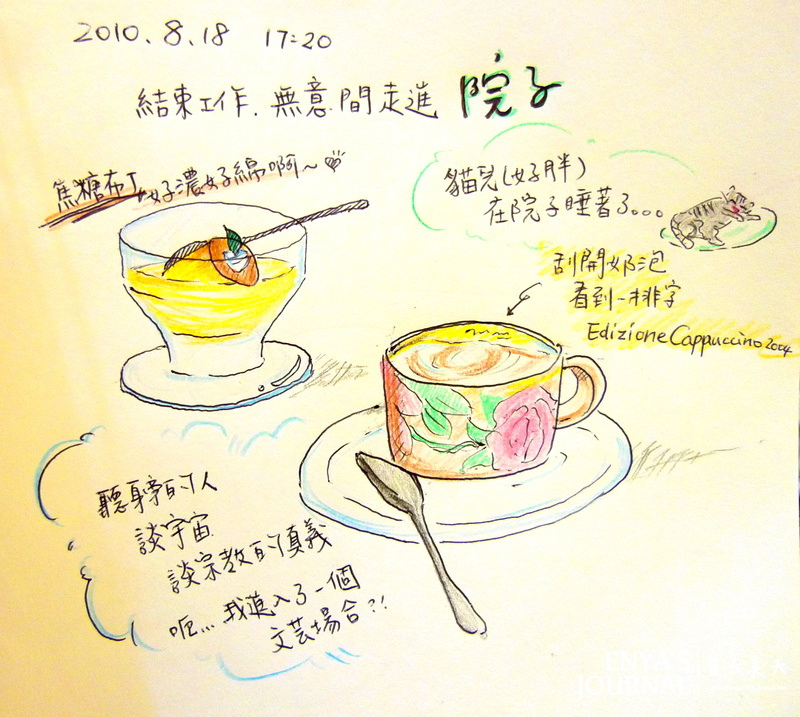 2010.8.18 17:20
結束工作.無意間走進 院子
焦糖布丁 好濃好綿啊~
貓兒(好胖)
在院子睡著了...
刮開奶泡
看到一排字
Edizione Cappuccino 2004
聽身旁的人
談宇宙
談宗教的真義
呃... 我進入了一個
文芸場合?!
ENYA'S
JOURNAL